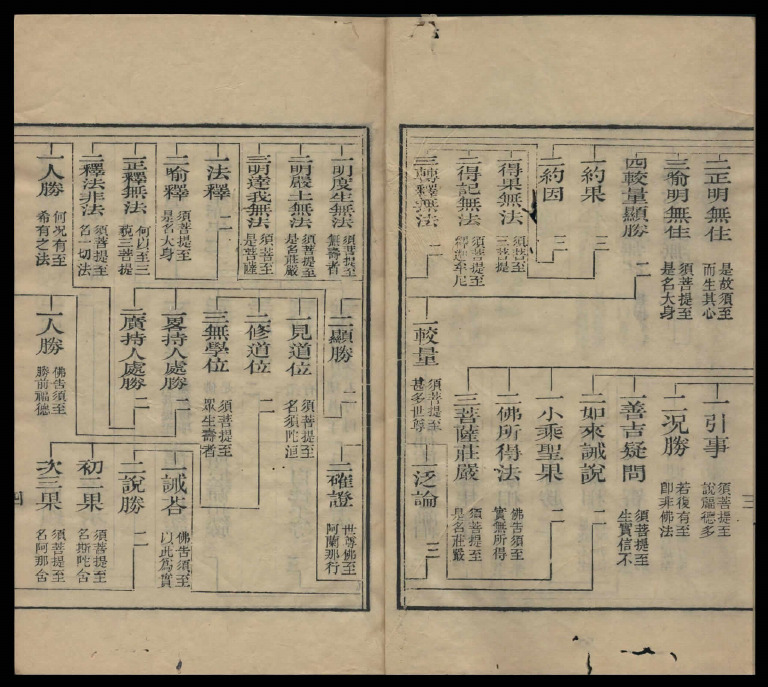 二正明無住 是故須至
而生其心
三喻明無住 須菩提至
是名大身
四較量顯勝 二
一約果 三
二約因 三
一得果無法 須菩提至
三菩提
二得記無法 須菩提至
釋迦牟尼
三轉釋無法 二
一引事 須菩提至
說福德多
二况勝 若復有至
即非佛法
一善吉疑問 須菩提至
生實信不
二如來誡說 二
一小乘聖果 二
二佛所得法 佛告須至
實無所得
三菩薩莊嚴 須菩提至
是名莊嚴
一較量 須菩提至
甚多世尊
一泛論 三
三
一明度生無法 須菩提至
無壽者
二明嚴土無法 須菩提至
是名莊嚴
三明達我無法 須菩至
是菩薩
一法釋 二
二喻釋 須菩提至
是名大身
一正釋無法 何以至三
藐三菩提
二釋法非法 須菩提至
名一切法
一人勝 何况有至
希有之法
二顯勝 二
一見道位 須菩提至
名須陀洹
二修道位 二
三無學位 須菩提至
眾生壽者
一畧持人處勝 二
二廣持人處勝 二
一人勝 佛告須至
勝前福德
二確證 世尊佛至
阿蘭那行
一誡荅 佛告須至
以此為實
二說勝 二
初二果 須菩提至
名斯陀含
次三果 須菩提至
名阿那含
四